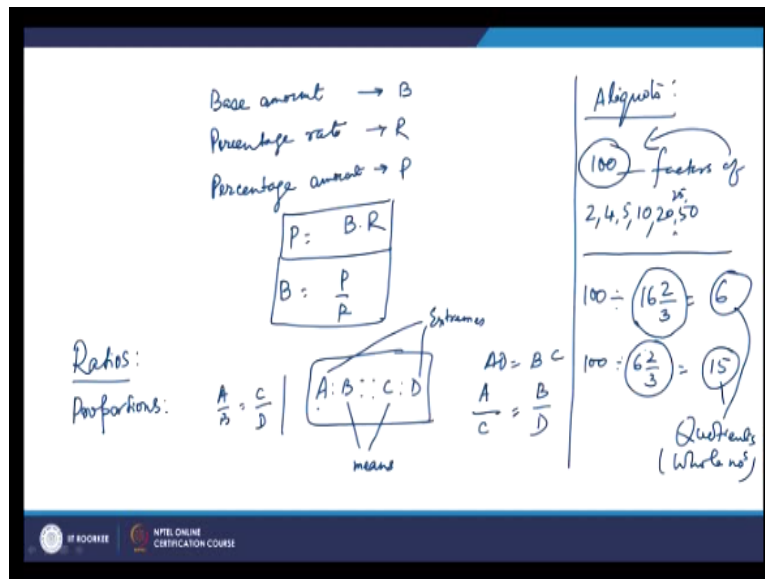 Base amount → B
Percentage rate → R
Percentage amount → P
P = B.R
B = P/R
Ratios:
Proportions: A/B = C/D | A : B :: C : D
Extremes
means
AD = BC
A/C = B/D
Aliquots:
100 factors of
2, 4, 5, 10, 20, 25, 50
100 ÷ 16 2/3 = 6
100 ÷ 6 2/3 = 15
Quotients
(Whole nos)
IIT ROORKEE
NPTEL ONLINE
CERTIFICATION COURSE